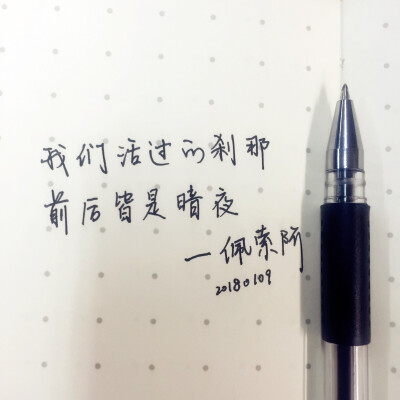 我们活过的刹那
前后皆是暗夜
—佩索阿
20180109